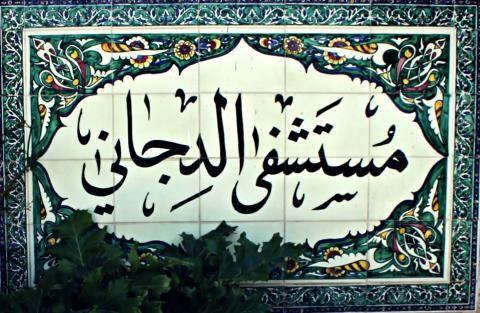 مُستَشفى الدِجاني